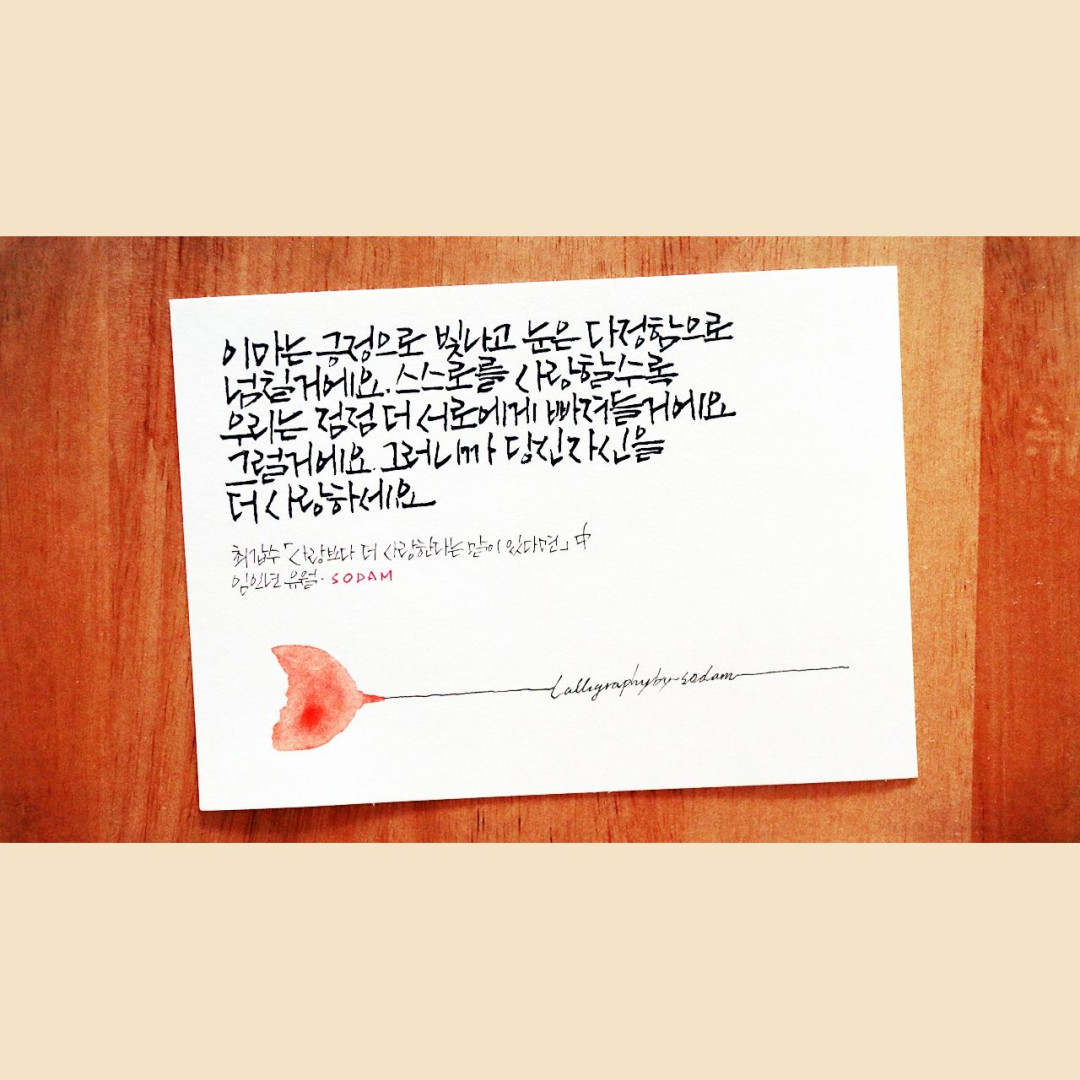 이마는 긍정으로 빛나고 눈은 다정함으로
넘칠거에요. 스스로를 사랑할수록
우리는 점점 더 서로에게 빠져들거에요
그럴거에요. 그러니까 당신자신을
더 사랑하세요
최갑수「사랑보다 더 사랑한다는 말이 있다면」中
임인년 유월· SODAM
Calligraphybysodam